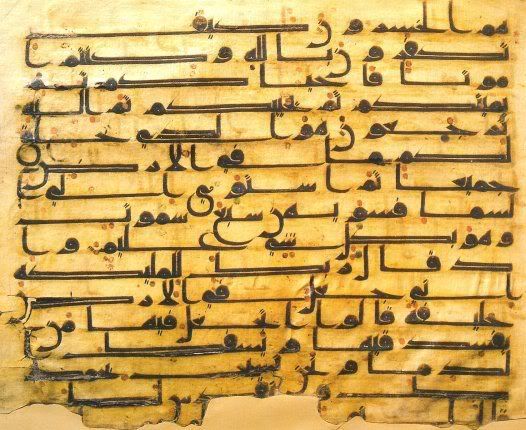 هم الخسرون كيف
تكفرون بالله وكنتم ا
موتا فاحياكم ثم
يميتكم ثم يحييكم ثم اليه
ترجعون هو الذي خلق
لكم ما في الارض
جميعا ثم استوى الى ا
لسما فسويهن سبع سموت
وهو بكل شي عليم وا
ذ قال ربك للمليكه
اني جعل في الارض
خليفة قالوا اتجعل فيها من
يفسد فيها ويسفك ا
لدما ونحن نسبح بحمد
ك ونقدس لك